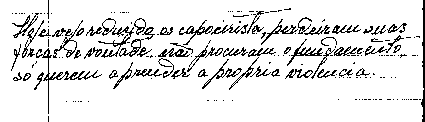 Hoje vejo reduzido os capoeirista, perdeiram suas
forças de vontade não procuram o fundamento,
só querem aprender a propria violencia.